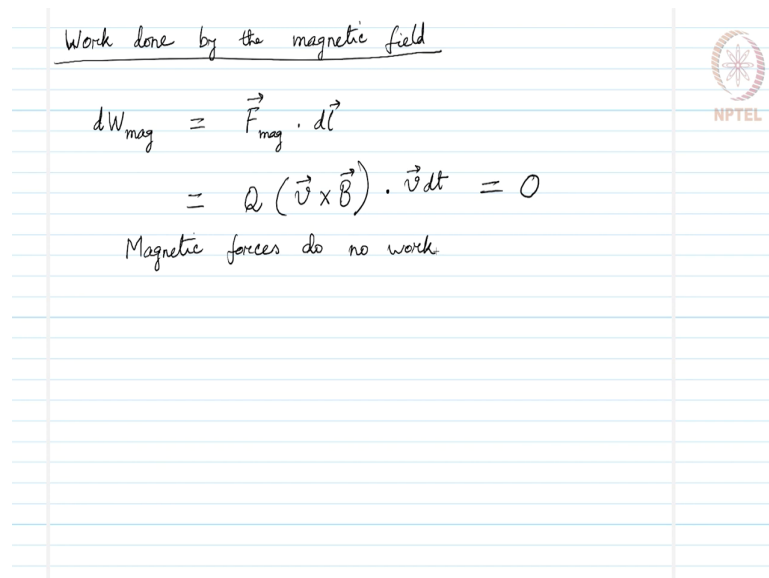 Work done by the magnetic field
NPTEL
dW_mag = F⃗_mag . dl⃗
= Q (v⃗ × B⃗) . v⃗ dt = 0
Magnetic forces do no work.